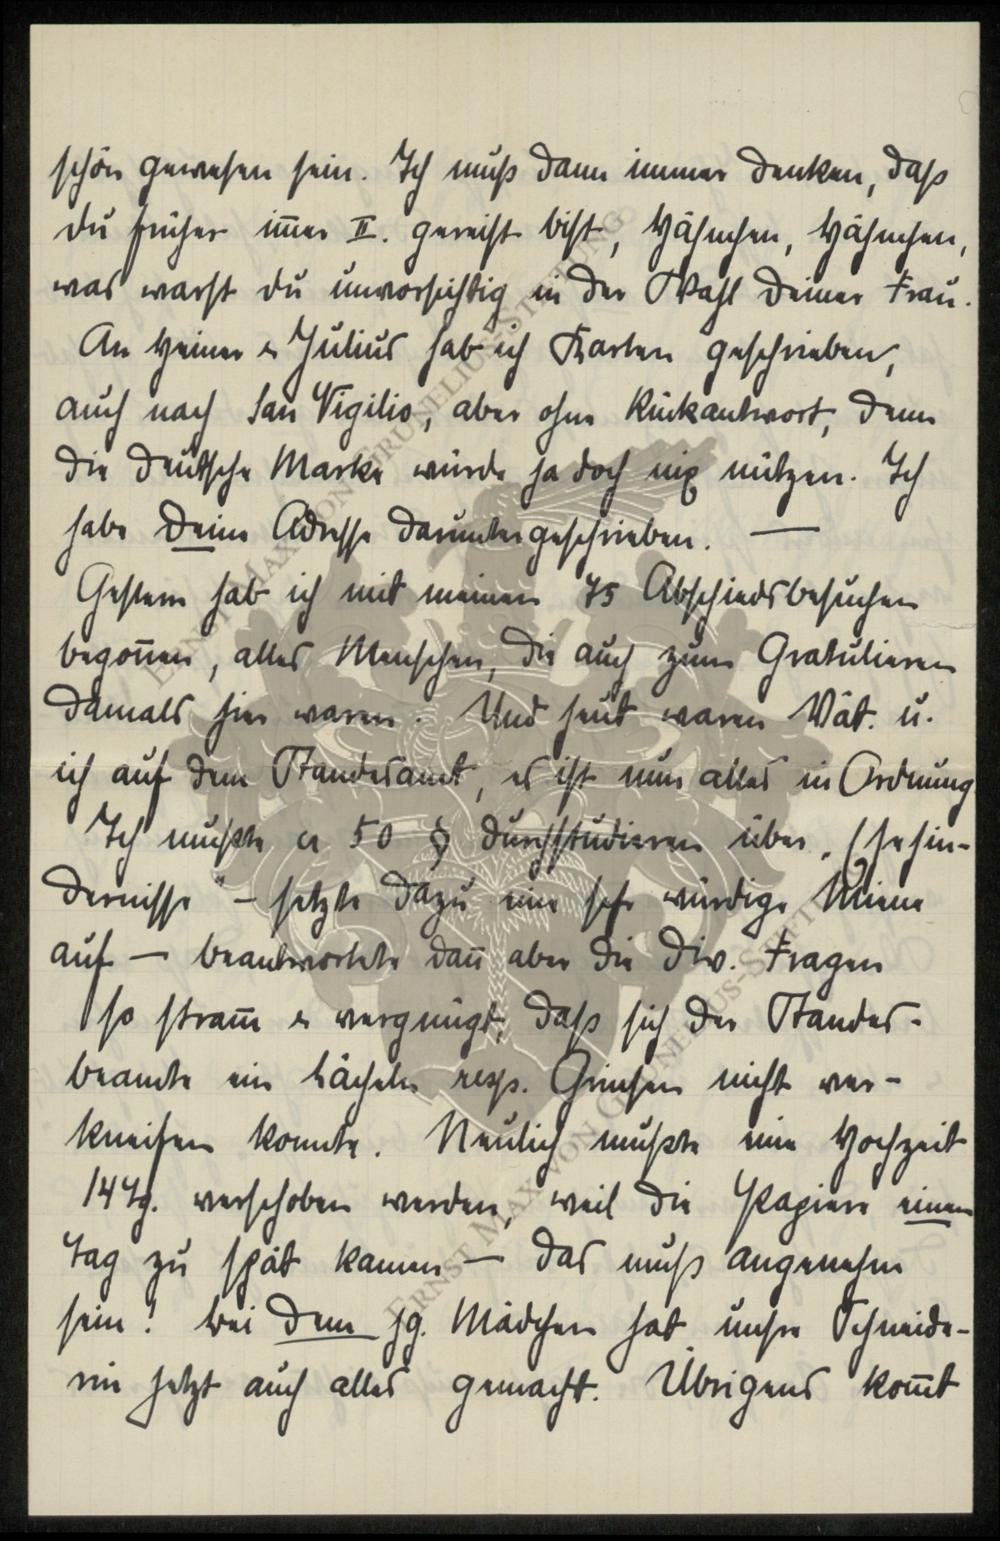 schön gewesen sein. Ich muß dann immer denken, daß
du früher im̅er II. gereist bist, Hähnchen, Hähnchen,
was warst du unvorsichtig in der Wahl deiner Frau.
An Heiner & Julius hab ich Karten geschrieben,
auch nach San Vigilio, aber ohne Rückantwort, denn
die deutsche Marke würde ja doch nix nützen. Ich
habe Deine Adresse daruntergeschrieben. —
Gestern hab ich mit meinen 75 Abschiedsbesuchen
begon̅en, alles Menschen, die auch zum Gratulieren
damals hier waren. Und heut waren Vat. u.
ich auf dem Standesamt, es ist nun alles in Ordnung
Ich mußte ca 50 § durchstudieren über „Ehehin-
dernisse" – setzte dazu eine sehr würdige Miene
auf — beantwortete dan̅ aber die div. Fragen
so stram̅ & vergnügt, daß sich der Standes-
beamte ein Lächeln resp. Grinsen nicht ver-
kneifen konnte. Neulich mußte eine Hochzeit
14 Tg. verschoben werden, weil die Papiere einen
Tag zu spät kamen — das muß angenehm
sein! Bei dem jg. Mädchen hat unsre Schneide-
rin jetzt auch alles gemacht. Übrigens kom̅t
ERNST MAX VON GRUNELIUS-STIFTUNG
ERNST MAX VON GRUNELIUS-STIFTUNG